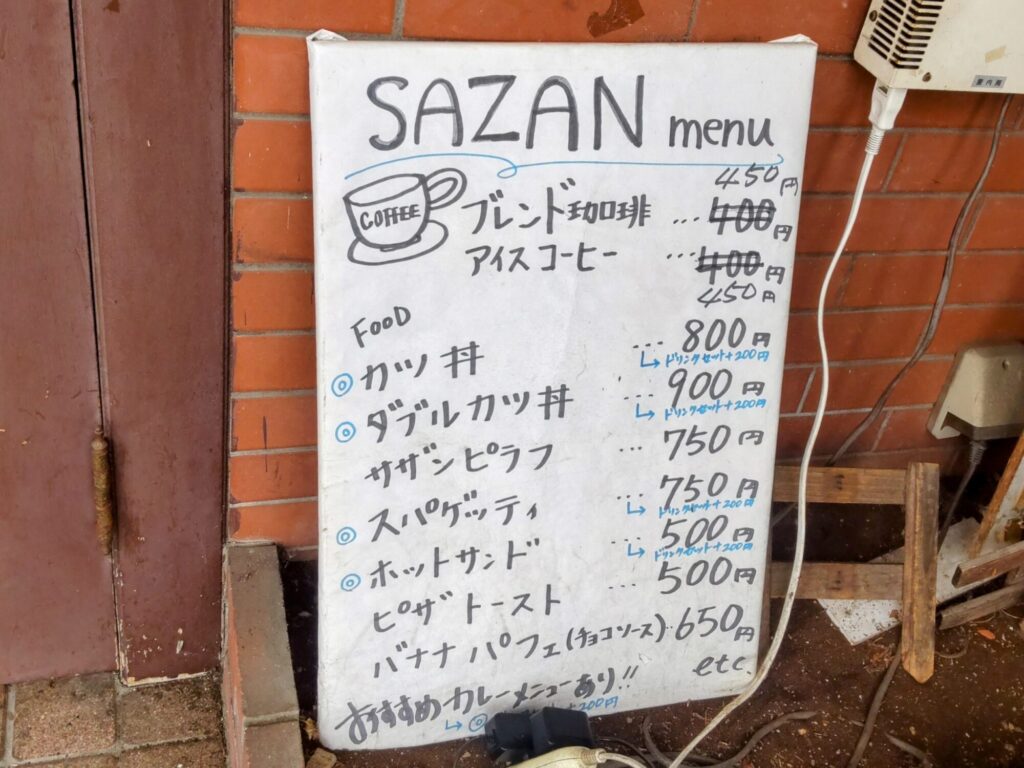 SAZAN menu
COFFEE
450円
ブレンド珈琲 ... 400円
アイスコーヒー ... 400円
450円
FOOD
◎ カツ丼 ... 800円
↳ ドリンクセット+200円
◎ ダブルカツ丼 ... 900円
↳ ドリンクセット+200円
サザンピラフ ... 750円
◎ スパゲッティ ... 750円
↳ ドリンクセット+200円
◎ ホットサンド ... 500円
↳ ドリンクセット+200円
ピザトースト ... 500円
バナナパフェ(チョコソース)・650円
etc.
おすすめカレーメニューあり!!
↳ ◎ +200円